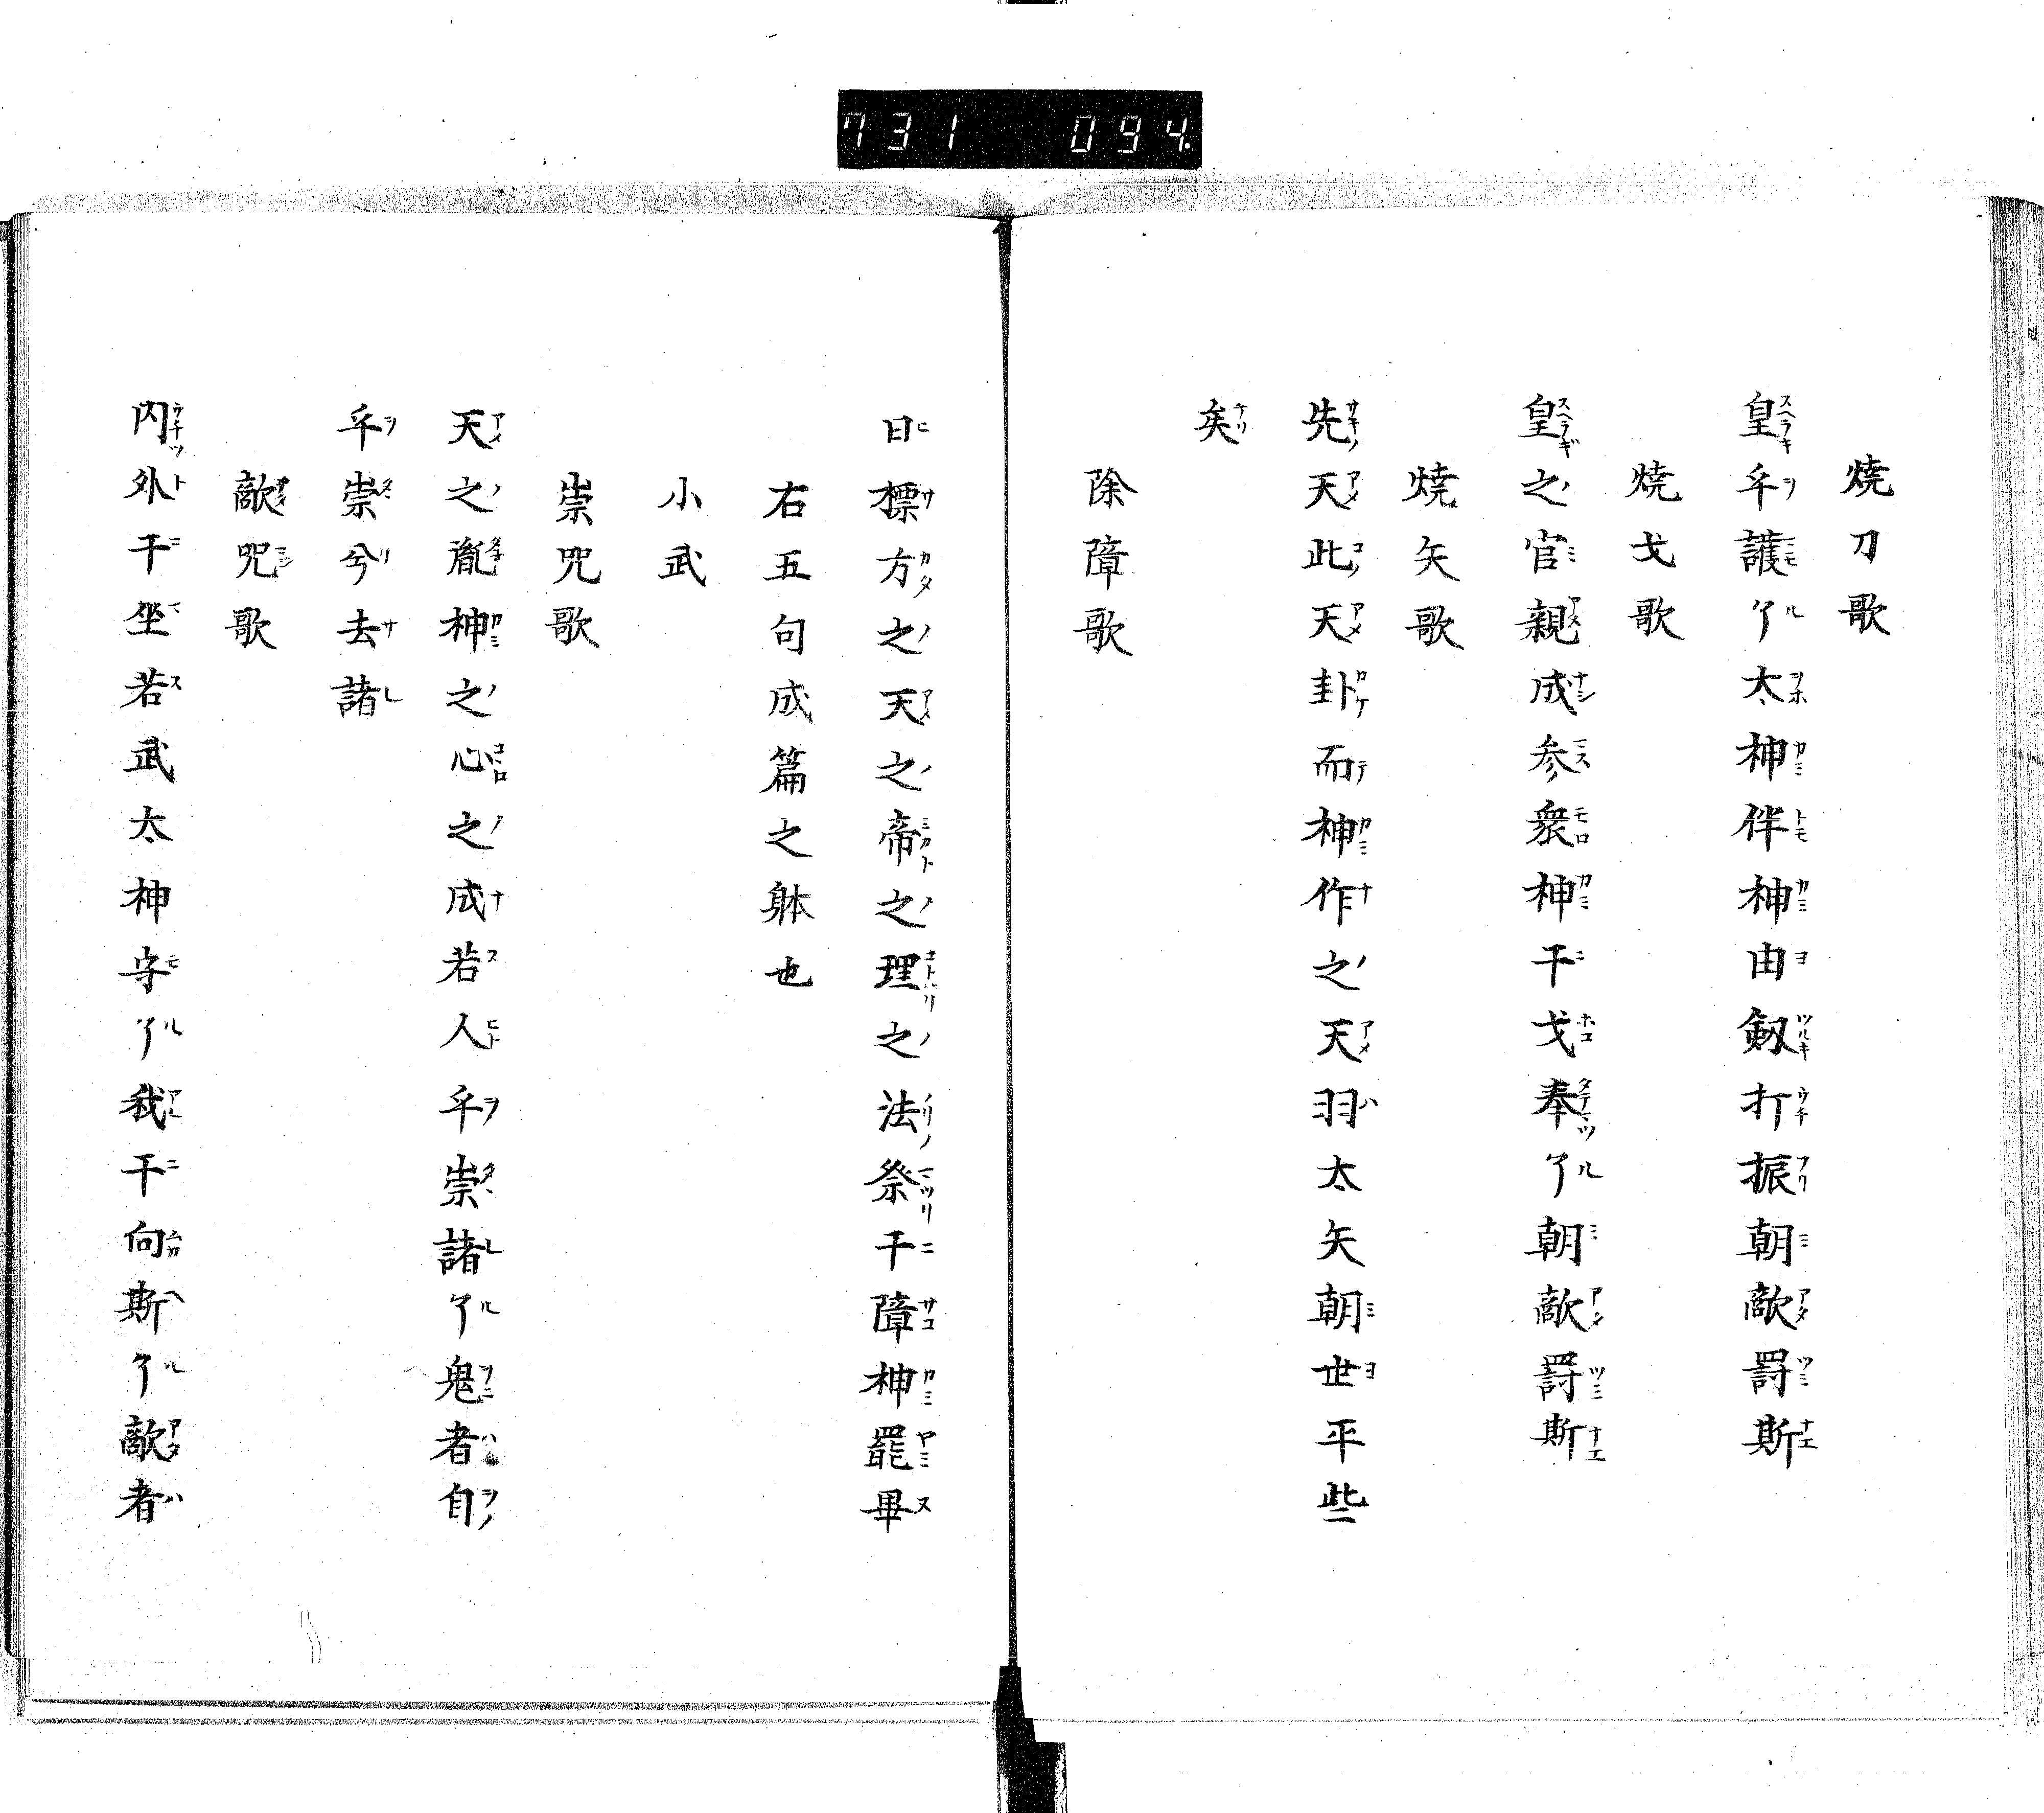 731 094.
焼刀歌
皇乎護了太神伴神由剱打振朝敵罸斯
焼戈歌
皇之官親成参衆神干戈奉了朝敵罸斯
焼矢歌
先天此天卦而神作之天羽太矢朝世平些
矣
除障歌
日標方之天之帝之理之法祭干障神罷畢
右五句成篇之躰也
小武
祟咒歌
天之胤神之心之成若人乎祟諸了鬼者自
乎祟兮去諸
敵咒歌
内外干坐若武太神守了我干向斯了敵者